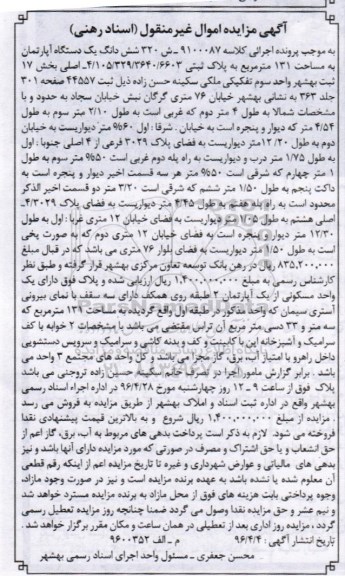 آگهی مزایده اموال غیرمنقول (اسناد رهنی)
به موجب پرونده اجرائی کلاسه ۹۱۰۰۰۸۷ ـ ش ۳۲۰ شش دانگ یک دستگاه آپارتمان
به مساحت ۱۳۱ مترمربع به پلاک ثبتی ۴/۱۰۵/۳۲۹/۳۶۴۰/۶۶۰۳ـ اصلی بخش ۱۷
ثبت بهشهر واحد سوم تفکیکی ملکی سکینه حسن زاده ذیل ثبت ۴۴۵۵۷ صفحه ۳۰۱
جلد ۳۶۳ به نشانی بهشهر خیابان ۷۶ متری گرگان نبش خیابان سجاد به حدود و با
مشخصات شمالا به طول ۴ متر دوم که غربی است به طول ۲/۱۰ متر سوم به طول
۴/۵۴ متر که دیوار و پنجره است به خیابان . شرقا : اول ۶۰% متر دیواریست به خیابان
دوم به طول ۱۲/۲۰ متر دیواریست به فضای پلاک ۳۰۲۹ فرعی از ۴ اصلی جنوبا : اول
به طول ۱/۷۵ متر درب و دیواریست به راه پله دوم غربی است ۵۰% متر سوم به طول
۱ متر چهارم که شرقی است ۵۰% متر هر سه قسمت اخیر دیوار و پنجره است به
داکت پنجم به طول ۱/۵۰ متر ششم که شرقی است ۳/۲۰ متر دو قسمت اخیر الذکر
محدود است به راه پله هفتم به طول ۴/۴۵ متر دیواریست به فضای پلاک ۴/۳۰۲۹ـ
اصلی هشتم به طول ۷۰۵ متر دیواریست به فضای خیابان ۱۲ متری غربا : اول به طول
۱۲/۳۰ متر دیوار و پنجره است به فضای خیابان ۱۲ متری دوم که به صورت پخی
است به طول ۱/۵۰ متر دیواریست به فضای بلوار ۷۶ متری می باشد که در قبال مبلغ
۸۳۵,۲۰۰,۰۰۰ ریال در رهن بانک توسعه تعاون مرکزی بهشهر قرار گرفته و طبق نظر
کارشناس رسمی به مبلغ ۱,۴۰۰,۰۰۰,۰۰۰ ریال ارزیابی شده و پلاک فوق دارای یک
واحد مسکونی از یک آپارتمان ۳ طبقه روی همکف دارای سه سقف با نمای بیرونی
آستری سیمان که واحد مذکور در طبقه اول واقع گردیده به مساحت ۱۳۱ مترمربع که
سه متر و ۳۳ دسی متر مربع آن تراس مقتضی می باشد با مشخصات ۲ خوابه با کف
سرامیک و آشپزخانه اپن با کابینت و کف و بدنه کاشی و سرامیک و سرویس دستشویی
داخل راهرو با امتیاز آب، برق، گاز مجزا می باشد و کل واحد های مجتمع ۳ واحد می
باشد برابر گزارش مامور اجرا در تصرف خانم سکینه حسن زاده تروجنی می باشد
پلاک فوق از ساعت ۹ ـ ۱۲ روز چهارشنبه مورخ ۹۶/۴/۲۸ در اداره اجراء اسناد رسمی
بهشهر واقع در اداره ثبت اسناد و املاک بهشهر از طریق مزایده به فروش می رسد
. مزایده از مبلغ ۱,۴۰۰,۰۰۰,۰۰۰ ریال شروع و به بالاترین قیمت پیشنهادی نقدا
فروخته می شود. لازم به ذکر است پرداخت بدهی های مربوط به آب، برق، گاز اعم از
حق انشعاب و یا حق اشتراک و مصرف در صورتی که مورد مزایده دارای آنها باشد و نیز
بدهی های مالیاتی و عوارض شهرداری و غیره تا تاریخ مزایده اعم از اینکه رقم قطعی
آن معلوم شده یا نشده باشد به عهده برنده مزایده است و نیز در صورت وجود مازاد،
وجوه پرداختی بابت هزینه های فوق از محل مازاد به برنده مزایده مسترد خواهد شد
و نیم عشر و حق مزایده نقدا وصول می گردد ضمنا چنانچه روز مزایده تعطیل رسمی
گردد ، مزایده روز اداری بعد از تعطیلی در همان ساعت و مکان مقرر برگزار خواهد شد .
تاریخ انتشار آگهی : ۹۶/۴/۴ م ـ الف ۹۶۰۰۳۵۲
محسن جعفری ـ مسئول واحد اجرای اسناد رسمی بهشهر